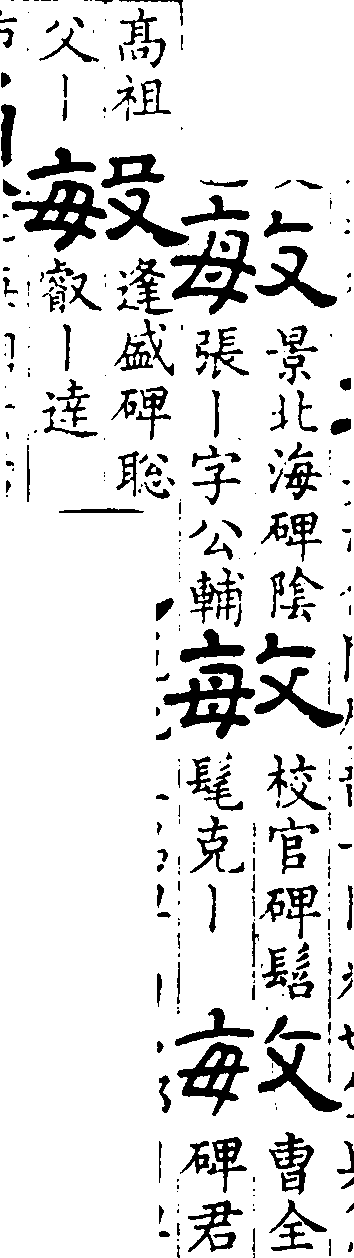 敏
景北海碑陰
張丨字公輔
敏
校官碑髫
髦克丨
敏
曹全
碑君
高祖
父丨
敏
逢盛碑聡
叡丨達